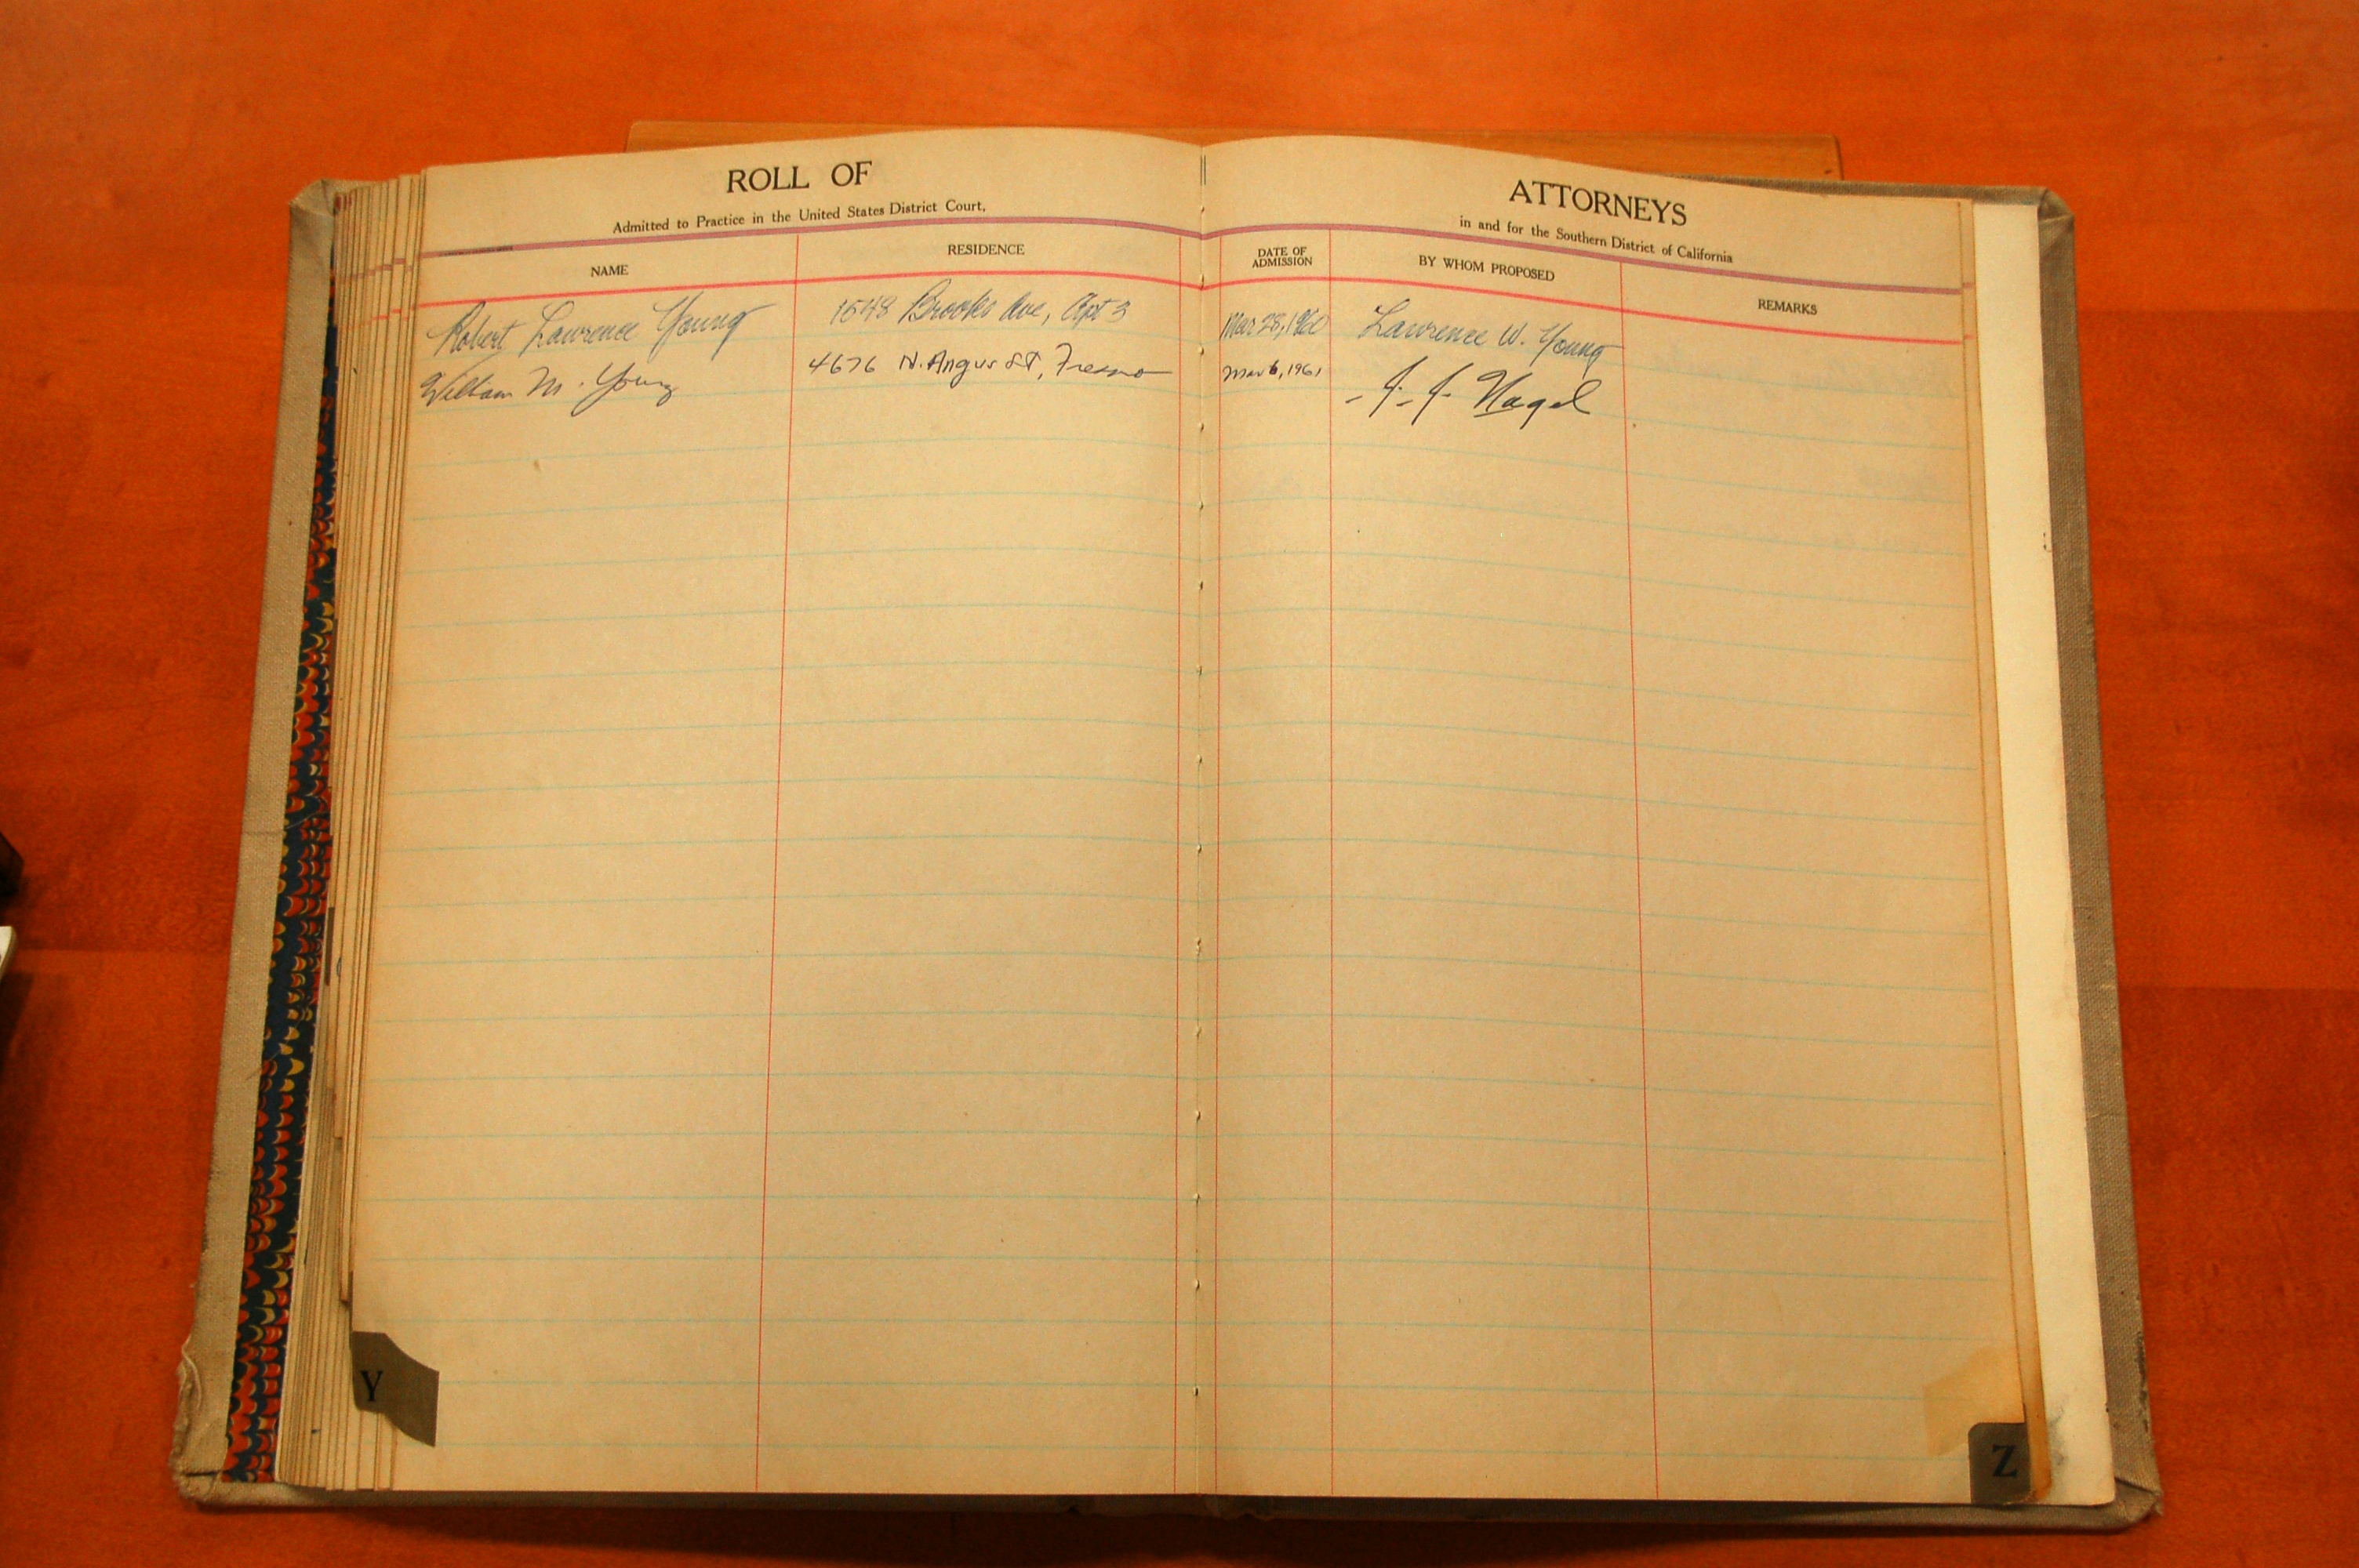 ROLL OF ATTORNEYS
Admitted to Practice in the United States District Court, in and for the Southern District of California
NAME RESIDENCE DATE OF ADMISSION BY WHOM PROPOSED REMARKS
Robert Lawrence Young 1548 Brooks Ave, Apt 3 Mar 28, 1960 Lawrence W. Young
William M. Young 4676 N. Angus St, Fresno Mar 6, 1961 Nagel
Y
Z